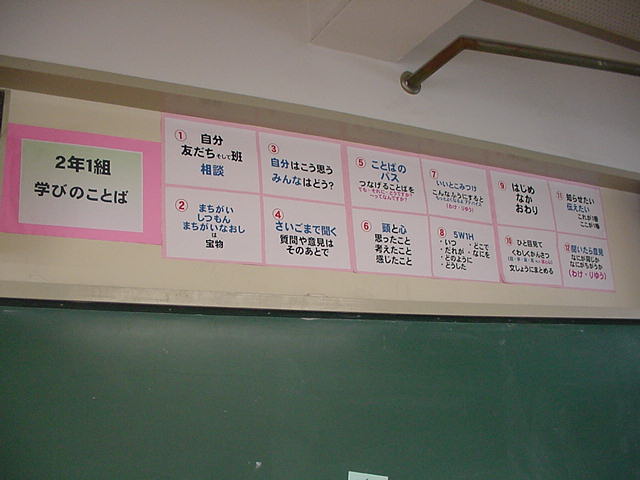 2年1組
学びのことば
① 自分
友だち そして 班
相談
② まちがい
しつもん
まちがいなおし
は
宝物
③
自分はこう思う
みんなはどう?
④
さいごまで聞く
質問や意見は
そのあとで
⑤ ことばの
パス
つなげることばを
でも・それに・どうですか?
⑥ 頭と心
思ったこと
考えたこと
感じたこと
⑦
いいとこみつけ
こんなふうにすると
(わけ・りゆう)
⑧ 5W1H
・いつ ・どこで
・だれが ・なにを
・どのように
・どうした
⑨ はじめ
なか
おわり
⑩ ひと目見て
くわしくかんさつ
文しょうにまとめる
⑪ 知らせたい
伝えたい
これが1番
ここが1番
⑫ 聞いたら意見
なにが同じか
なにがちがうか
(わけ・りゆう)